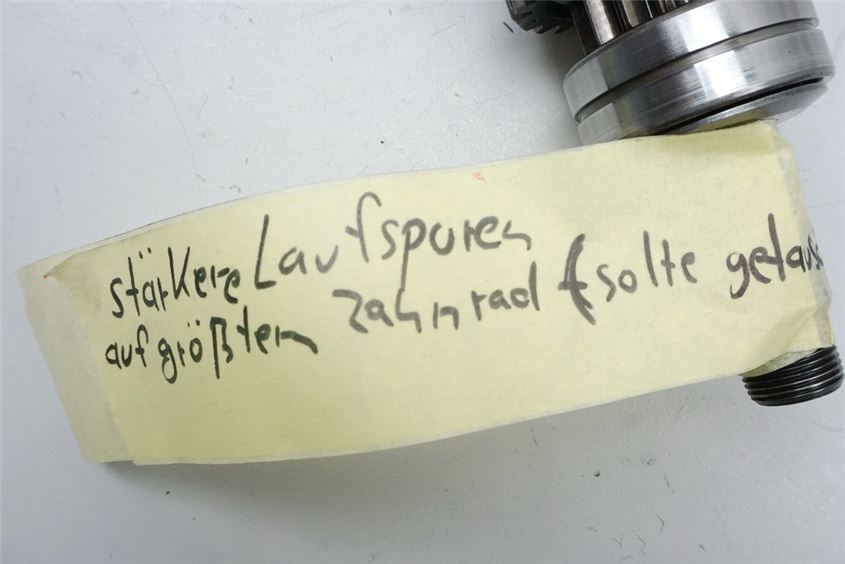 stärkere Laufspuren
auf größtem Zahnrad (solte